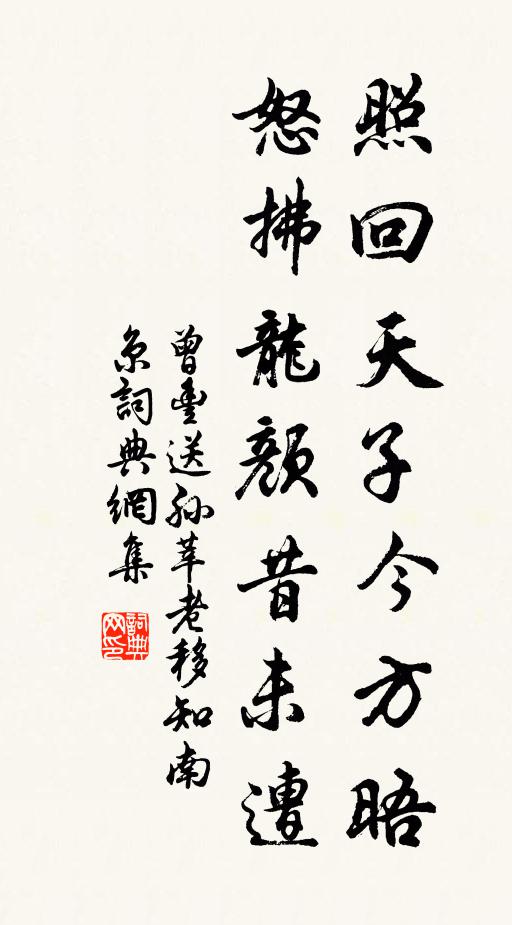 照回天子今方晤
怒拂龍顏昔未遭
曾豐送孙莘老移知南
京詞典網集
詞典网印